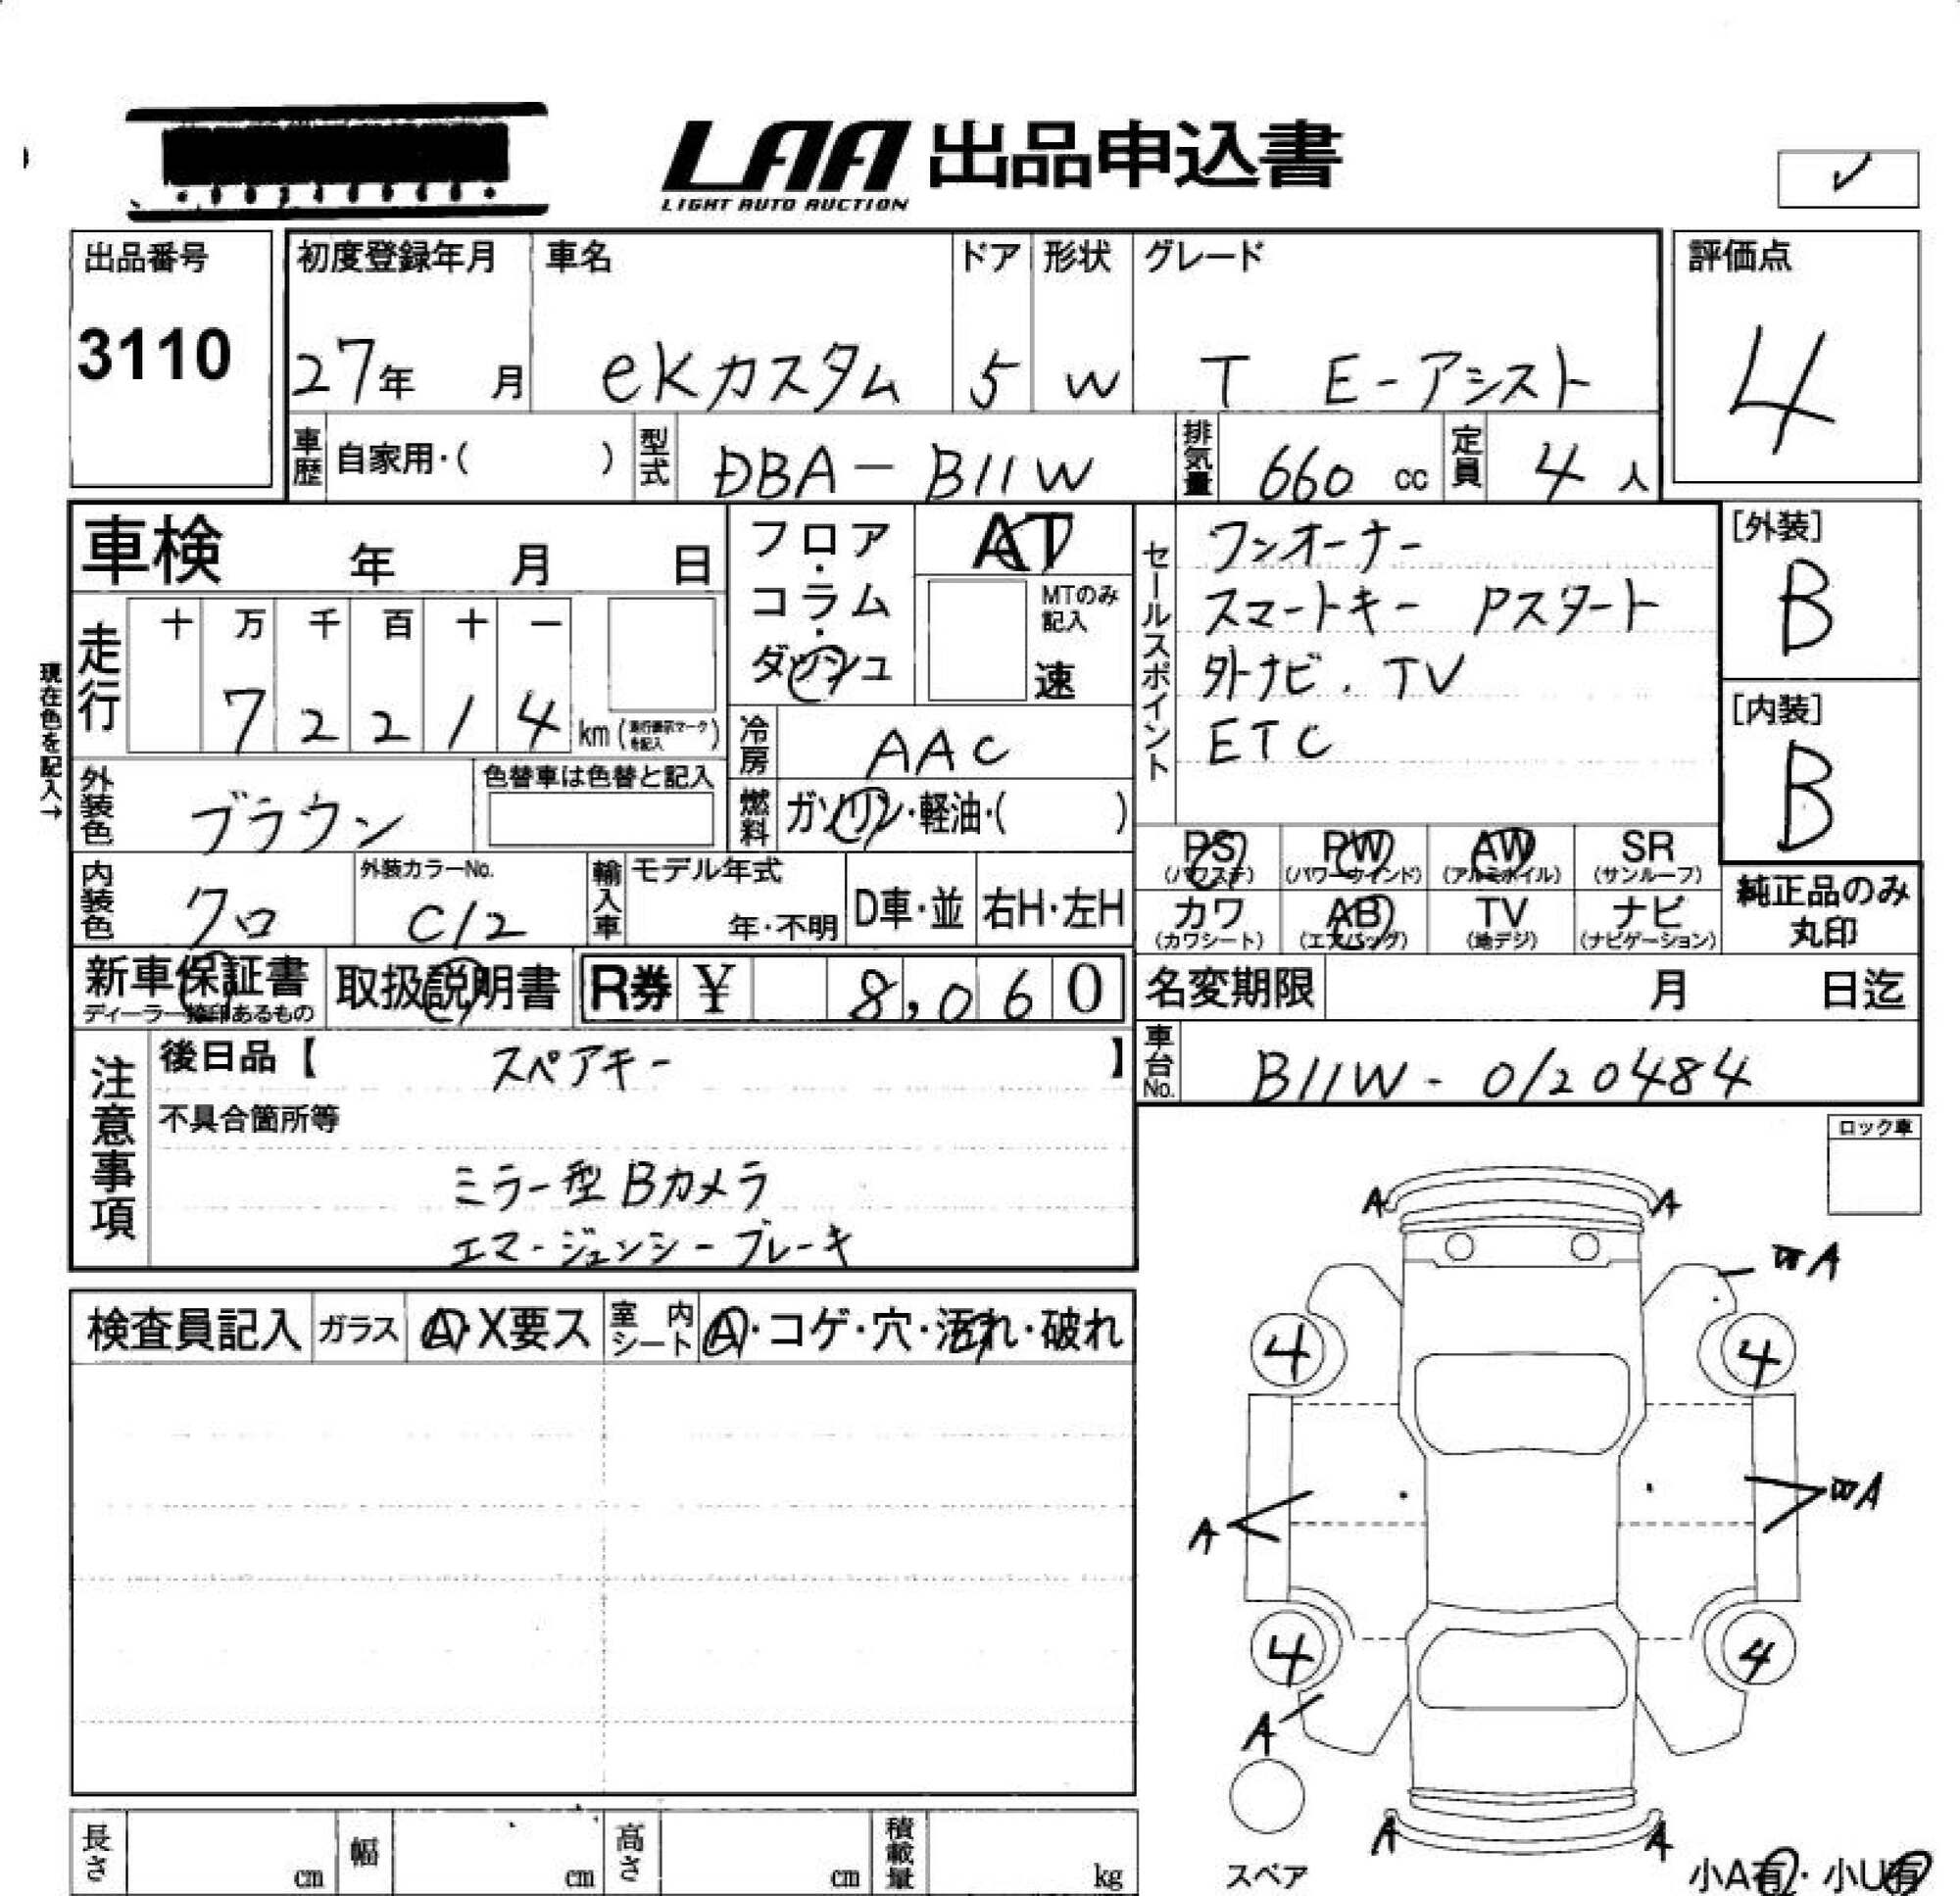 LAA 出品申込書
LIGHT AUTO AUCTION
✓
出品番号
3110
初度登録年月
27年 月
車名
eKカスタム
ドア
5
形状
W
グレード
T E-アシスト
評価点
4
車歴 自家用・( )
型式 DBA-B11W
排気量 660 cc
定員 4 人
車検 年 月 日
フロア・コラム・ダッシュ
AT
MTのみ記入
速
セールスポイント
ワンオーナー
スマートキー Pスタート
外ナビ.TV
ETC
[外装]
B
[内装]
B
現在色を記入→
走行
十 万 千 百 十 一
7 2 2 1 4 km (走行表示マークを記入)
冷房 AAC
外装色 ブラウン
色替車は色替と記入
燃料 ガソリン・軽油・( )
PS (パワステ)
PW (パワーウインド)
AW (アルミホイル)
SR (サンルーフ)
カワ (カワシート)
AB (エアバッグ)
TV (地デジ)
ナビ (ナビゲーション)
純正品のみ丸印
内装色 クロ
外装カラーNo.
C12
輸入車
モデル年式
年・不明
D車・並
右H・左H
新車保証書
ディーラー捺印あるもの
取扱説明書
R券 ¥ 8,060
名変期限 月 日迄
車台No. B11W-0120484
注意事項
後日品【 スペアキー 】
不具合箇所等
ミラー型Bカメラ
エマージェンシーブレーキ
ロック車
検査員記入
ガラス A・X要ス
室内シート A・コゲ・穴・汚れ・破れ
A A
WA
4 4
A WA
4 4
A
A A
スペア
小A有・小U有
長さ cm
幅 cm
高さ cm
積載量 kg